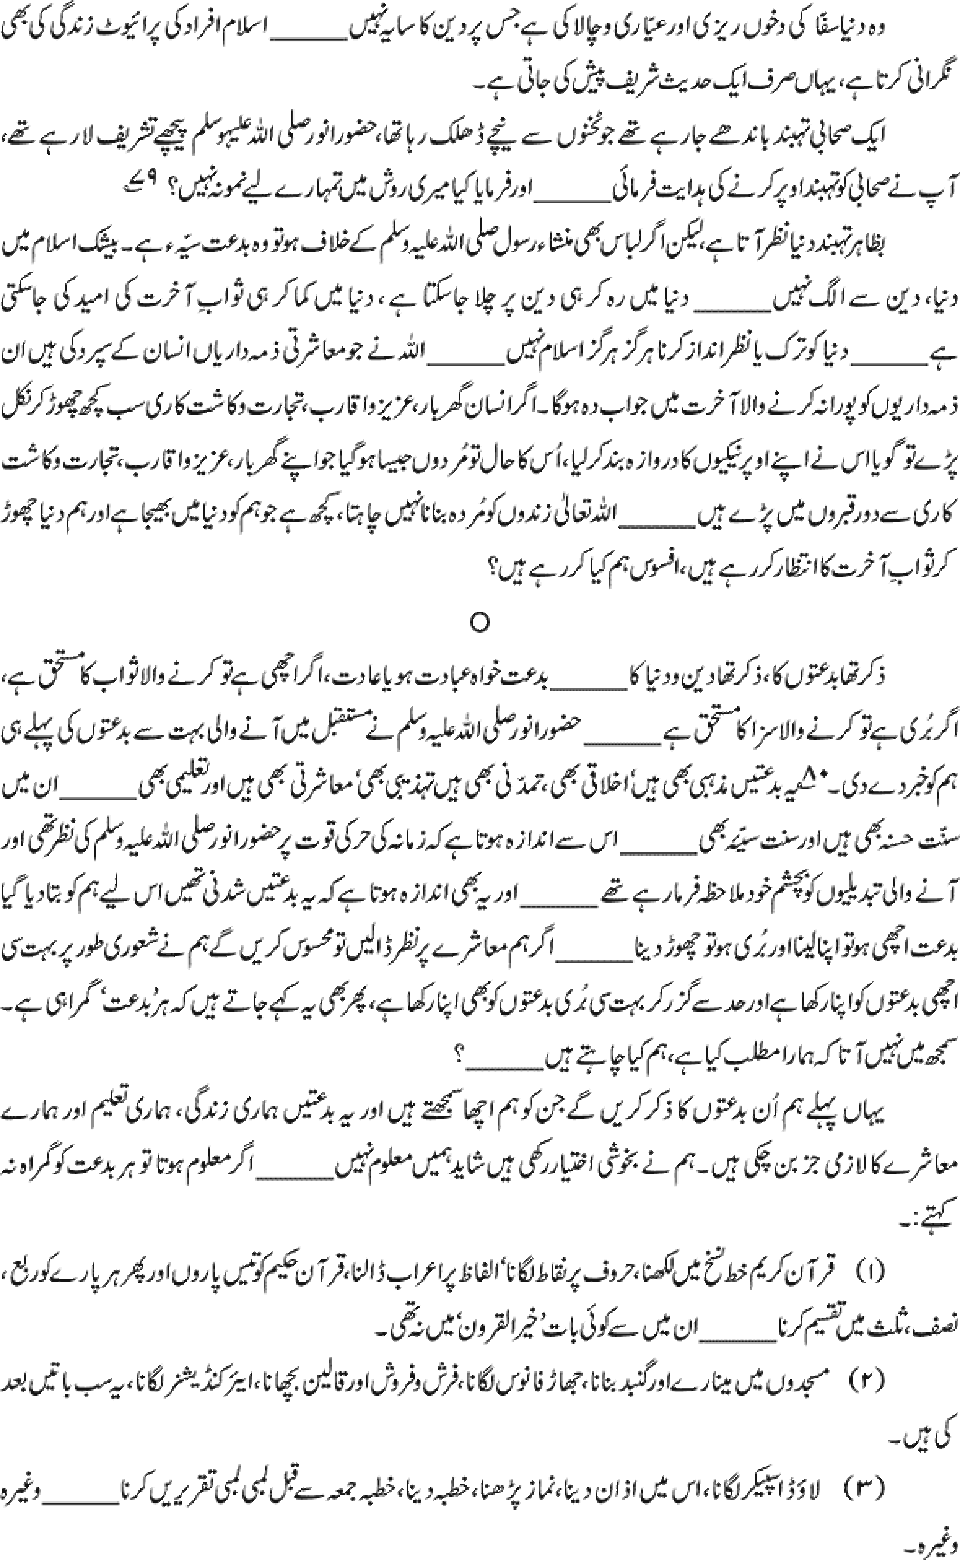 وہ دنیا سفّا کی دخوں ریزی اور عیّاری و چالا کی ہے جس پر دین کا سایہ نہیں ______ اسلام افراد کی پرائیوٹ زندگی کی بھی
نگرانی کرتا ہے، یہاں صرف ایک حدیث شریف پیش کی جاتی ہے۔
ایک صحابی تہبند باندھے جارہے تھے جو ٹخنوں سے نیچے ڈھلک رہا تھا، حضور انور صلی اللہ علیہ وسلم پیچھے تشریف لا رہے تھے،
آپ نے صحابی کو تہبند اوپر کرنے کی ہدایت فرمائی ______ اور فرمایا کیا میری روش میں تمہارے لیے نمونہ نہیں؟ ۷۹؎
بظاہر تہبند دنیا نظر آتا ہے، لیکن اگر لباس بھی منشاء رسول صلی اللہ علیہ وسلم کے خلاف ہو تو وہ بدعت سیّء ہے۔ بیشک اسلام میں
دنیا، دین سے الگ نہیں ______ دنیا میں رہ کر ہی دین پر چلا جاسکتا ہے، دنیا میں کما کر ہی ثوابِ آخرت کی امید کی جاسکتی
ہے ______ دنیا کو ترک یا نظر انداز کرنا ہرگز ہرگز اسلام نہیں ______ اللہ نے جو معاشرتی ذمہ داریاں انسان کے سپرو کی ہیں اُن
ذمہ داریوں کو پورا نہ کرنے والا آخرت میں جواب دہ ہوگا۔ اگر انسان گھر بار، عزیز و اقارب، تجارت و کاشت کاری سب کچھ چھوڑ کر نکل
پڑے تو گویا اس نے اپنے اوپر نیکیوں کا دروازہ بند کر لیا، اُس کا حال تو مُردوں جیسا ہو گیا جو اپنے گھر بار، عزیز و اقارب، تجارت و کاشت
کاری سے دور قبروں میں پڑے ہیں ______ اللہ تعالیٰ زندوں کو مُردہ بنانا نہیں چاہتا، کچھ ہے جو ہم کو دنیا میں بھیجا ہے اور ہم دنیا چھوڑ
کر ثوابِ آخرت کا انتظار کر رہے ہیں، افسوس ہم کیا کر رہے ہیں؟
O
ذکر تھا بدعتوں کا، ذکر تھا دین و دنیا کا ______ بدعت خواہ عبادت ہو یا عادت، اگر اچھی ہے تو کرنے والا ثواب کا مستحق ہے،
اگر بُری ہے تو کرنے والا سزا کا مستحق ہے ______ حضور انور صلی اللہ علیہ وسلم نے مستقبل میں آنے والی بہت سے بدعتوں کی پہلے ہی
ہم کو خبر دے دی۔ ۸۰؎ یہ بدعتیں مذہبی بھی ہیں‘ اخلاقی بھی، تمدّنی بھی ہیں تہذیبی بھی‘ معاشرتی بھی ہیں اور تعلیمی بھی ______ ان میں
سنّت حسنہ بھی ہیں اور سنت سیّئہ بھی ______ اس سے اندازہ ہوتا ہے کہ زمانہ کی حرکی قوت پر حضور انور صلی اللہ علیہ وسلم کی نظر تھی اور
آنے والی تبدیلیوں کو بچشم خود ملاحظہ فرما رہے تھے ______ اور یہ بھی اندازہ ہوتا ہے کہ یہ بدعتیں شدنی تھیں اس لیے ہم کو بتا دیا گیا
بدعت اچھی ہو تو اپنا لینا اور بُری ہو تو چھوڑ دینا ______ اگر ہم معاشرے پر نظر ڈالیں تو محسوس کریں گے ہم نے شعوری طور پر بہت سی
اچھی بدعتوں کو اپنا رکھا ہے اور حد سے گزر کر بہت سی بُری بدعتوں کو بھی اپنا رکھا ہے، پھر بھی یہ کہے جاتے ہیں کہ ہر ’بدعت‘ گمراہی ہے۔
سمجھ میں نہیں آتا کہ ہمارا مطلب کیا ہے، ہم کیا چاہتے ہیں ______؟
یہاں پہلے ہم اُن بدعتوں کا ذکر کریں گے جن کو ہم اچھا سمجھتے ہیں اور یہ بدعتیں ہماری زندگی، ہماری تعلیم اور ہمارے
معاشرے کا لازمی جز بن چکی ہیں۔ ہم نے بخوشی اختیار رکھی ہیں شاید ہمیں معلوم نہیں ______ اگر معلوم ہوتا تو ہر بدعت کو گمراہ نہ
کہتے:۔
(۱) قرآن کریم خط نسخ میں لکھنا، حروف پر نقاط لگانا‘ الفاظ پر اعراب ڈالنا، قرآن حکیم کو تیس پاروں اور پھر ہر پارے کو ربع،
نصف، ثلث میں تقسیم کرنا ______ ان میں سے کوئی بات ’خیر القرون‘ میں نہ تھی۔
(۲) مسجدوں میں مینارے اور گنبد بنانا، جھاڑ فانوس لگانا، فرش و فروش اور قالین بچھانا، ایئر کنڈیشنر لگانا، یہ سب باتیں بعد
کی ہیں۔
(۳) لاؤڈ اسپیکر لگانا، اس میں اذان دینا، نماز پڑھنا، خطبہ دینا، خطبہ جمعہ سے قبل لمبی لمبی تقریریں کرنا ______ وغیرہ
وغیرہ۔